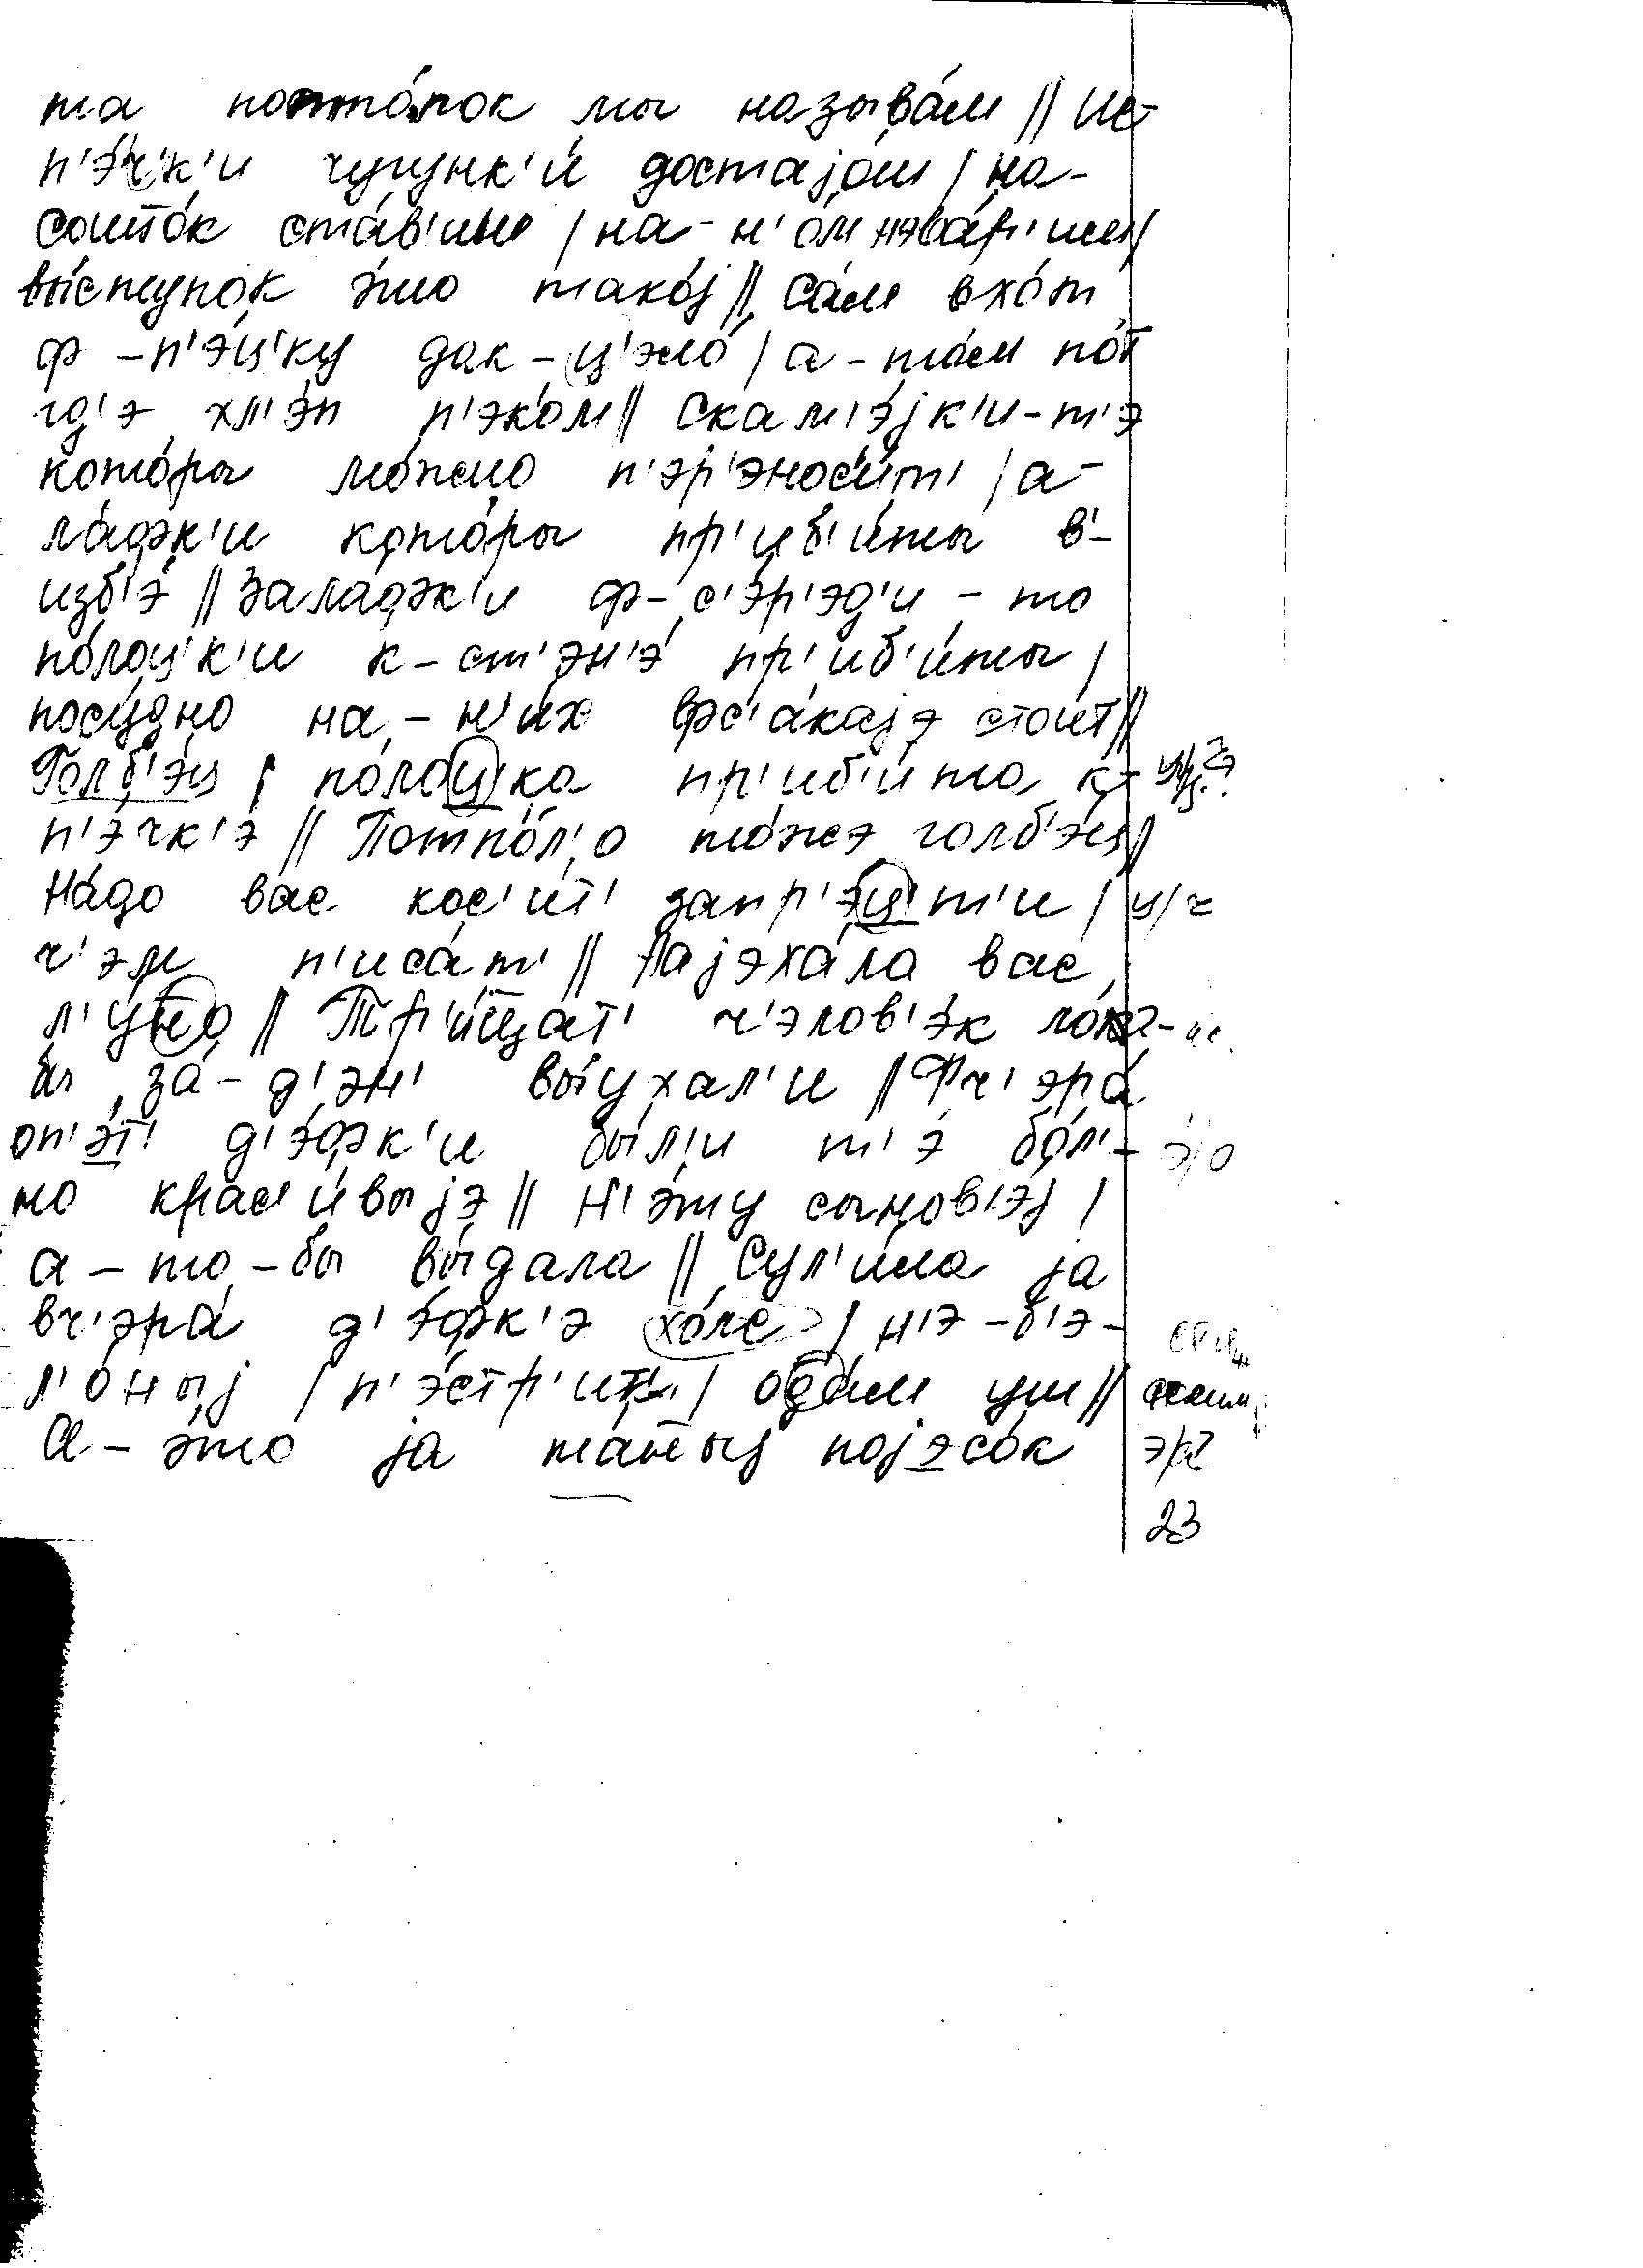 та потто́лок мы называ́м // Ис-
п'э́ч'к'и чугунк'и́ достајо́м / на-
сошто́к ста́в'им / на-н'о́м нэва́р'им /
вы́ступок э́то тако́ј // Са́м вхо́т
ф-п'э́ц'ку дак-ц'эло́ / а-та́м по́т
гд'э хл'э́п п'эко́м // Скам'э́јк'и-т'э
кото́ры мо́жно п'эр'энос'и́т' / а-
ла́фк'и кото́ры пр'иб'и́ты в'-
изб'э́ // Зала́фк'и ф-с'э́р'эд'и-то
по́лоц'к'и к-ст'эн'э́ пр'иб'и́ты /
посу́дно на-н'и́х фс'а́кајэ стои́т //
Голб'э́ц / по́лоц'ка пр'иб'и́та к- ц'/ч?
п'э́чк'э // Потпо́л'јо то́жэ голб'э́ц //
На́до вас кос'и́т' запр'эц'т'и́ / ц/ч
ч'эм п'иса́т' // Најэ́хала вас
л'у́но // Тр'и́ццат' ч'элов'э́к ло́н
бы за́-д'эн' вы́ухал'и // Фч'эра́
оп'э́т' д'э́фк'и бы́л'и т'э́ бо́л'- э/о
но крас'и́выјэ // Н'э́ту сыновј'э́ј /
а-то-бы вы́дала // Сул'и́ла ја
вч'эра́ д'э́фк'э хо́лс / н'э-б'э-
л'о́ныј / п'э́стр'ит'к / ода́м уш //
А-э́то ја та́ныј појэсо́к э/а?
23